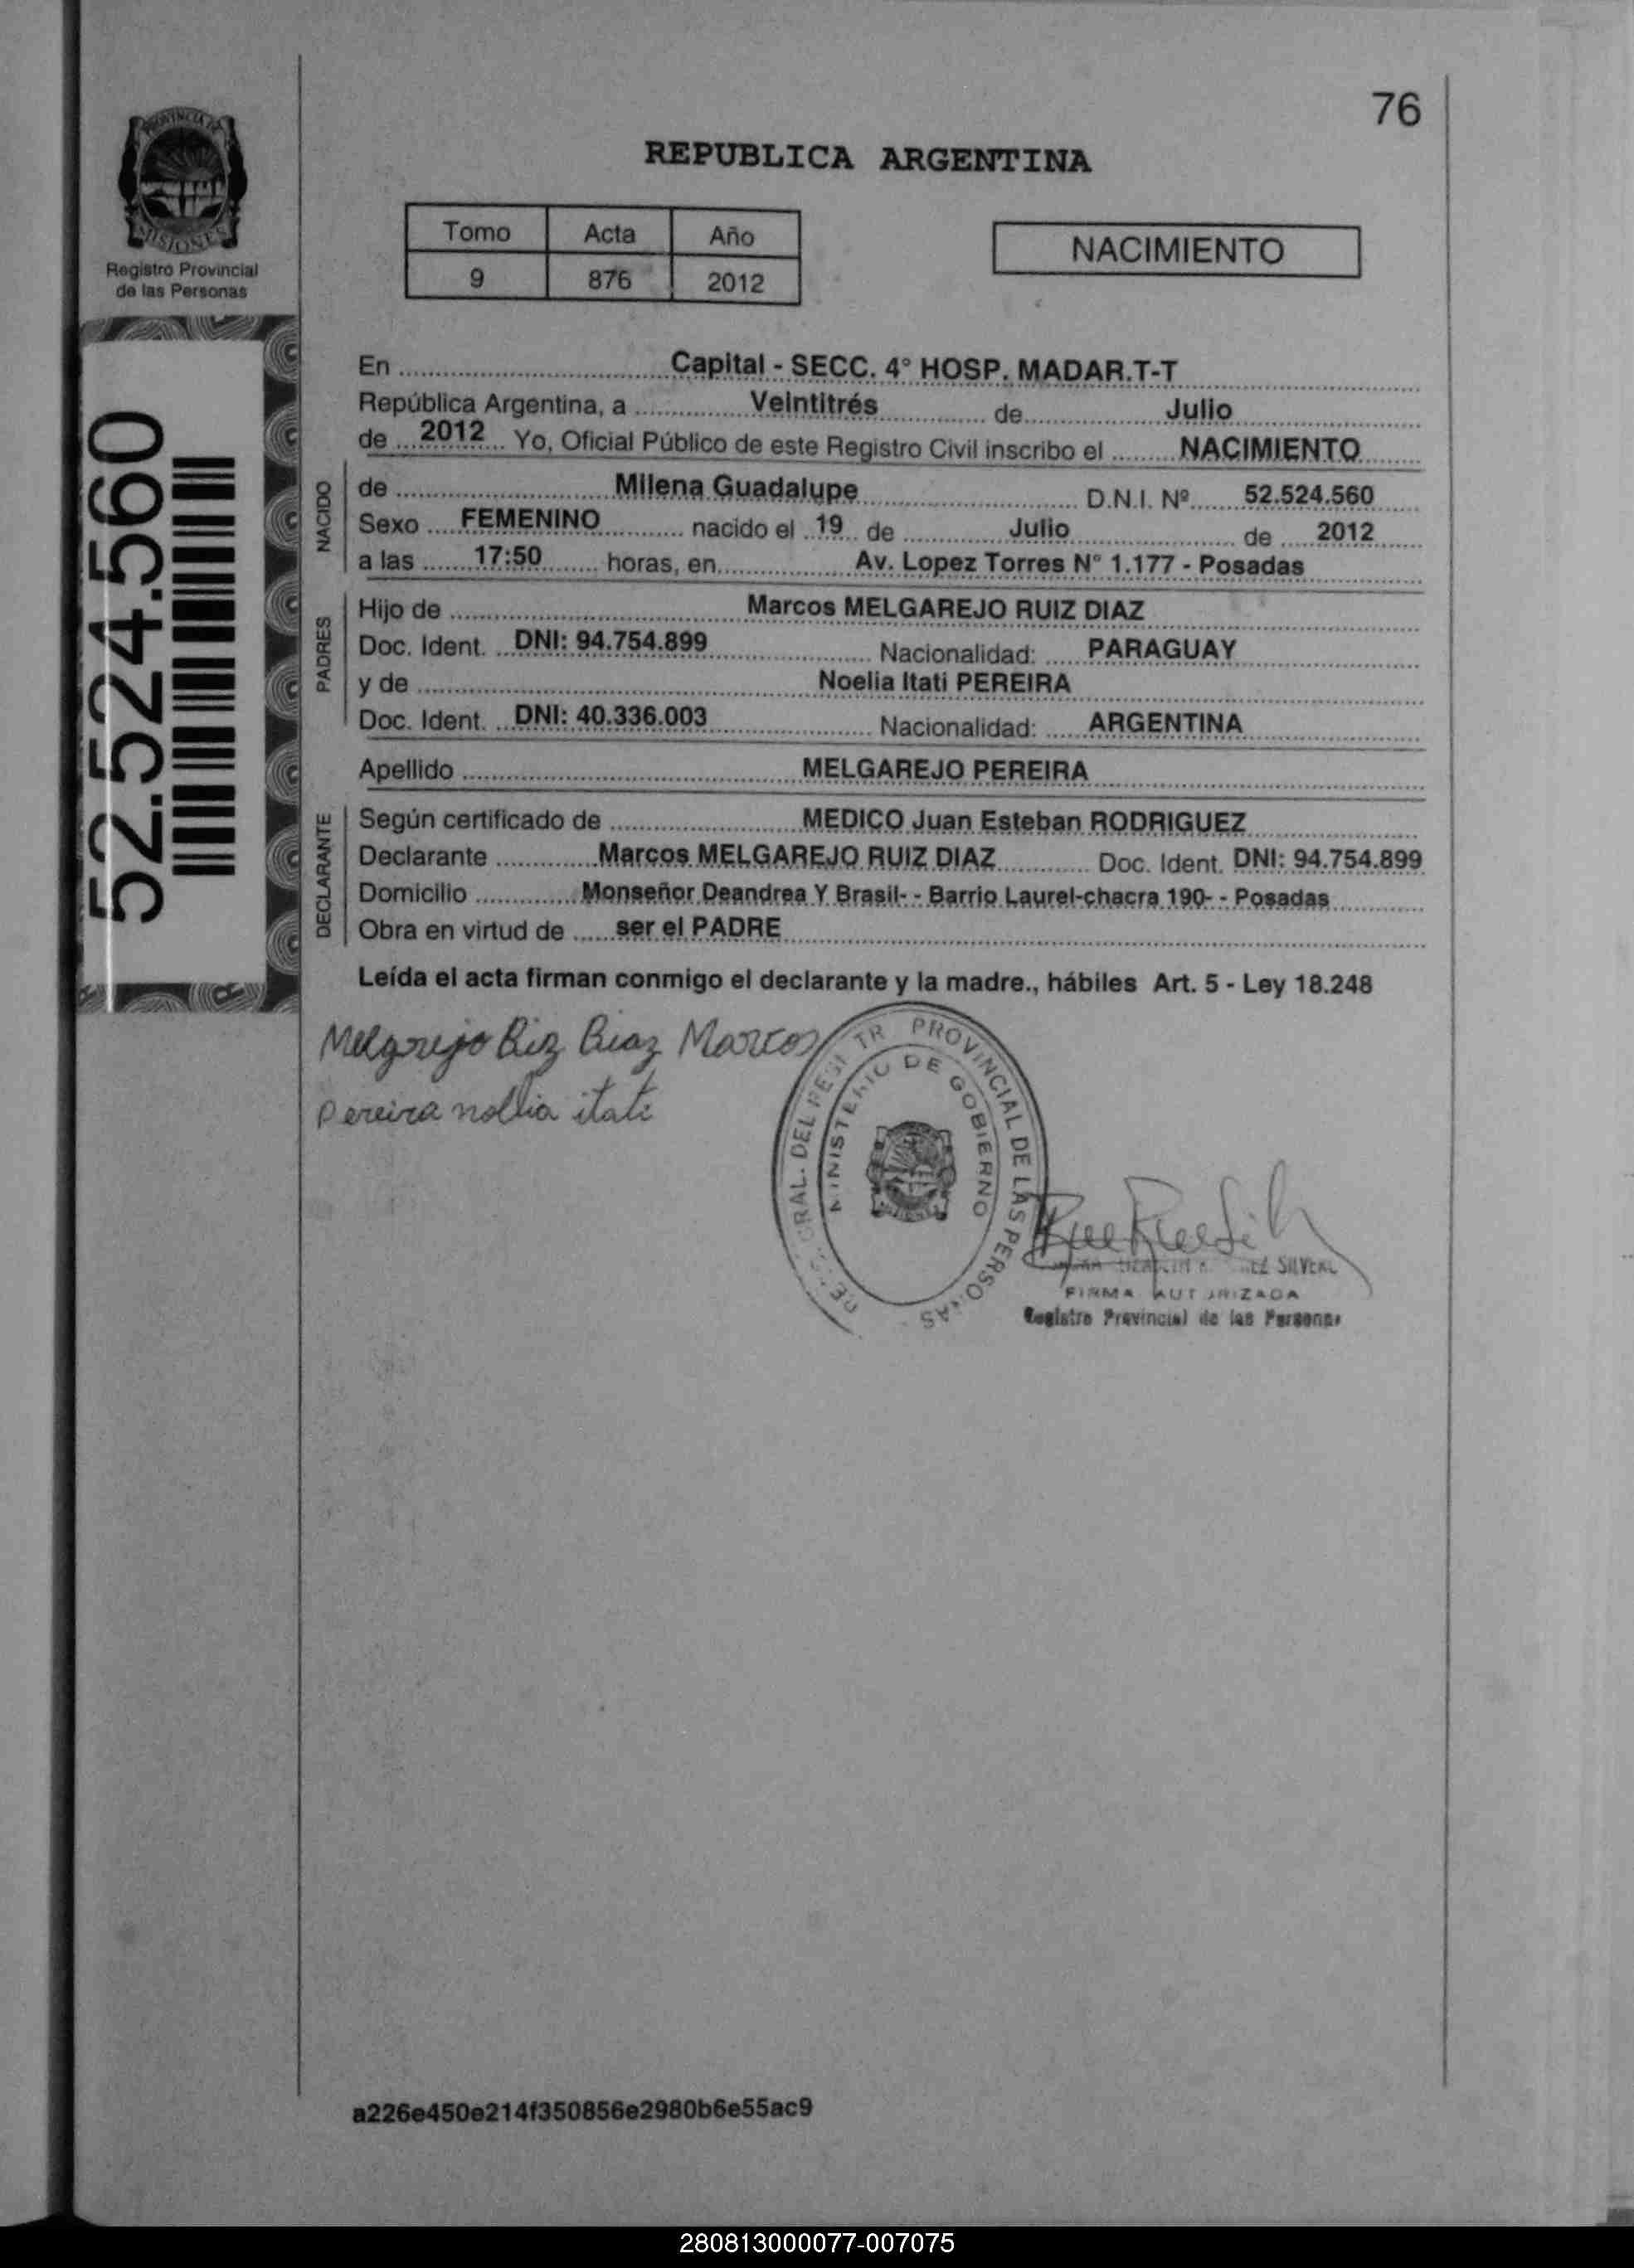 76
PROVINCIA DE
MISIONES
Registro Provincial
de las Personas
52.524.560
REPUBLICA ARGENTINA
Tomo Acta Año
9 876 2012
NACIMIENTO
En Capital - SECC. 4° HOSP. MADAR.T-T
República Argentina, a Veintitrés de Julio
de 2012 Yo, Oficial Público de este Registro Civil inscribo el NACIMIENTO
NACIDO
de Milena Guadalupe D.N.I. Nº 52.524.560
Sexo FEMENINO nacido el 19 de Julio de 2012
a las 17:50 horas, en Av. Lopez Torres N° 1.177 - Posadas
PADRES
Hijo de Marcos MELGAREJO RUIZ DIAZ
Doc. Ident. DNI: 94.754.899 Nacionalidad: PARAGUAY
y de Noelia Itati PEREIRA
Doc. Ident. DNI: 40.336.003 Nacionalidad: ARGENTINA
Apellido MELGAREJO PEREIRA
DECLARANTE
Según certificado de MEDICO Juan Esteban RODRIGUEZ
Declarante Marcos MELGAREJO RUIZ DIAZ Doc. Ident. DNI: 94.754.899
Domicilio Monseñor Deandrea Y Brasil- - Barrio Laurel-chacra 190- - Posadas
Obra en virtud de ser el PADRE
Leída el acta firman conmigo el declarante y la madre., hábiles Art. 5 - Ley 18.248
Melgarejo Ruiz Diaz Marcos
Pereira noelia itati
PROVINCIAL DE LAS PERSONAS
MINISTERIO DE GOBIERNO
SILVERA
FIRMA AUTORIZADA
Registro Provincial de las Personas
a226e450e214f350856e2980b6e55ac9
280813000077-007075